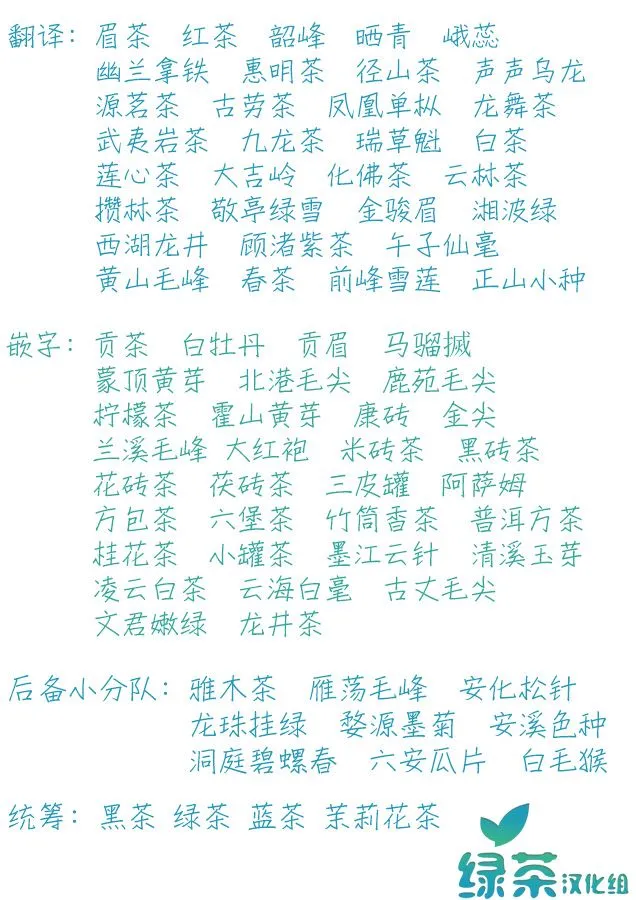 翻译: 眉茶 红茶 韶峰 晒青 峨蕊
幽兰拿铁 惠明茶 径山茶 声声乌龙
源茗茶 古劳茶 凤凰单枞 龙舞茶
武夷岩茶 九龙茶 瑞草魁 白茶
莲心茶 大吉岭 化佛茶 云林茶
攒林茶 敬亭绿雪 金骏眉 湘波绿
西湖龙井 顾渚紫茶 午子仙毫
黄山毛峰 春茶 前峰雪莲 正山小种
嵌字: 贡茶 白牡丹 贡眉 马骝搣
蒙顶黄芽 北港毛尖 鹿苑毛尖
柠檬茶 霍山黄芽 康砖 金尖
兰溪毛峰 大红袍 米砖茶 黑砖茶
花砖茶 茯砖茶 三皮罐 阿萨姆
方包茶 六堡茶 竹筒香茶 普洱方茶
桂花茶 小罐茶 墨江云针 清溪玉芽
凌云白茶 云海白毫 古丈毛尖
文君嫩绿 龙井茶
后备小分队: 雅木茶 雁荡毛峰 安化松针
龙珠挂绿 婺源墨菊 安溪色种
洞庭碧螺春 六安瓜片 白毛猴
统筹: 黑茶 绿茶 蓝茶 茉莉花茶
绿茶汉化组